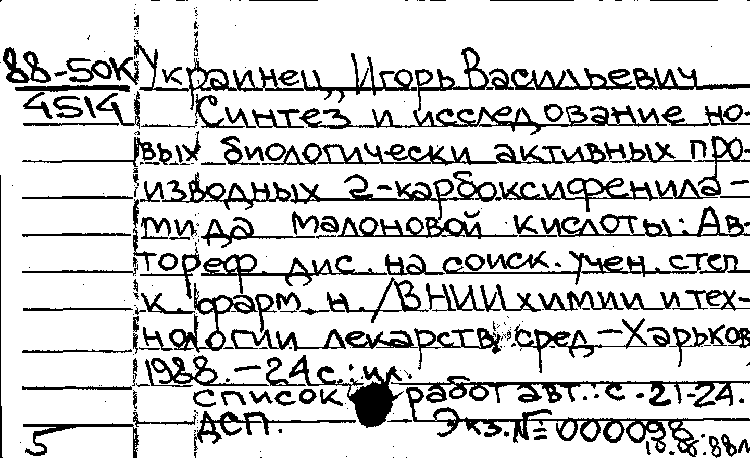 88-50К Украинец, Игорь Васильевич
4514 Синтез и исследование но-
вых биологически активных про-
изводных 2-карбоксифенила-
мида малоновой кислоты: Ав-
тореф. дис. на соиск. учен. степ
к. фарм. н. / ВНИИ химии и тех-
нологии лекарств. сред. - Харьков
1988. - 24 с.: ил.
список работ авт.: с. 21-24.
ДСП. Экз. № 000098.
5